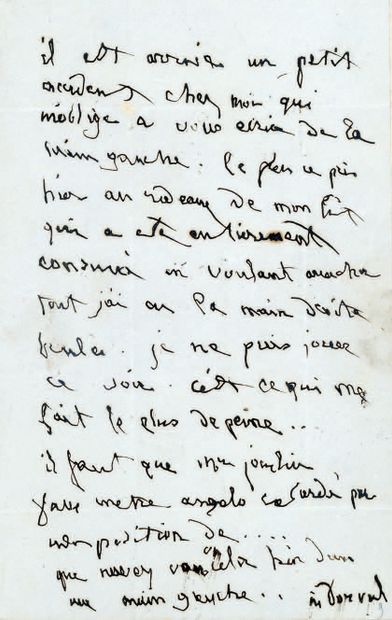 il est arrivé un petit
accident chez moi qui
m'oblige a vous ecrire de la
main gauche. le feu a pris
hier au rideau de mon lit
qui a été entierement
consumé en voulant arracher
tout j'ai eu la main droite
brulée. je ne puis jouer
ce soir. c'est ce qui me
fait le plus de peine..
il faut que mr jouslin
fasse mettre angelo retardé par
indisposition de....
que
une main gauche.. m dorval